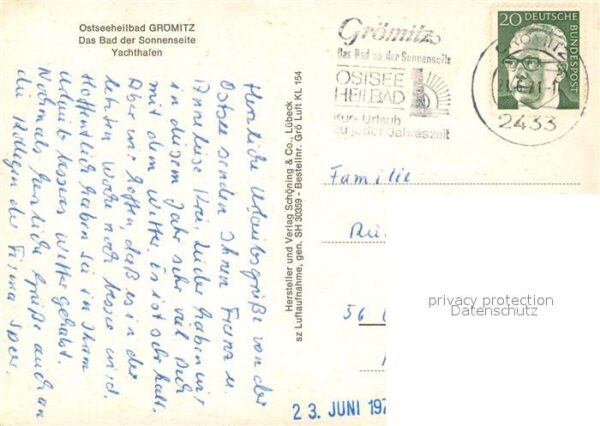 Ostseeheilbad GRÖMITZ
Das Bad der Sonnenseite
Yachthafen
Herzliche Urlaubsgrüße von der
Ostsee senden Ihnen Franz u.
Anneliese. Leider haben wir
in diesem Jahr sehr viel Pech
mit dem Wetter. Es ist sehr kalt.
Aber wir hoffen, daß es in der
letzten Woche noch besser wird.
Hoffentlich haben Sie in Ihrem
Urlaub besseres Wetter gehabt.
Nochmals herzliche Grüße auch an
die Kollegen der Firma
Hersteller und Verlag Schöning & Co., Lübeck
sz Luftaufnahme, gen. SH 30359 - Bestellnr. Grö Luft KL 154
Grömitz
Das Bad an der Sonnenseite
OSTSEE
HEILBAD
Kur - Urlaub
zu jeder Jahreszeit
20 DEUTSCHE
BUNDESPOST
GRÖMITZ
2433
Familie
56
privacy protection
Datenschutz
23. JUNI 197